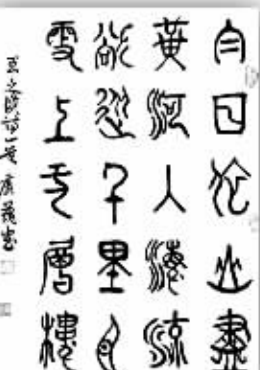 白日依山盡
黃河入海流
欲窮千里目
更上一層樓
王之渙詩一首